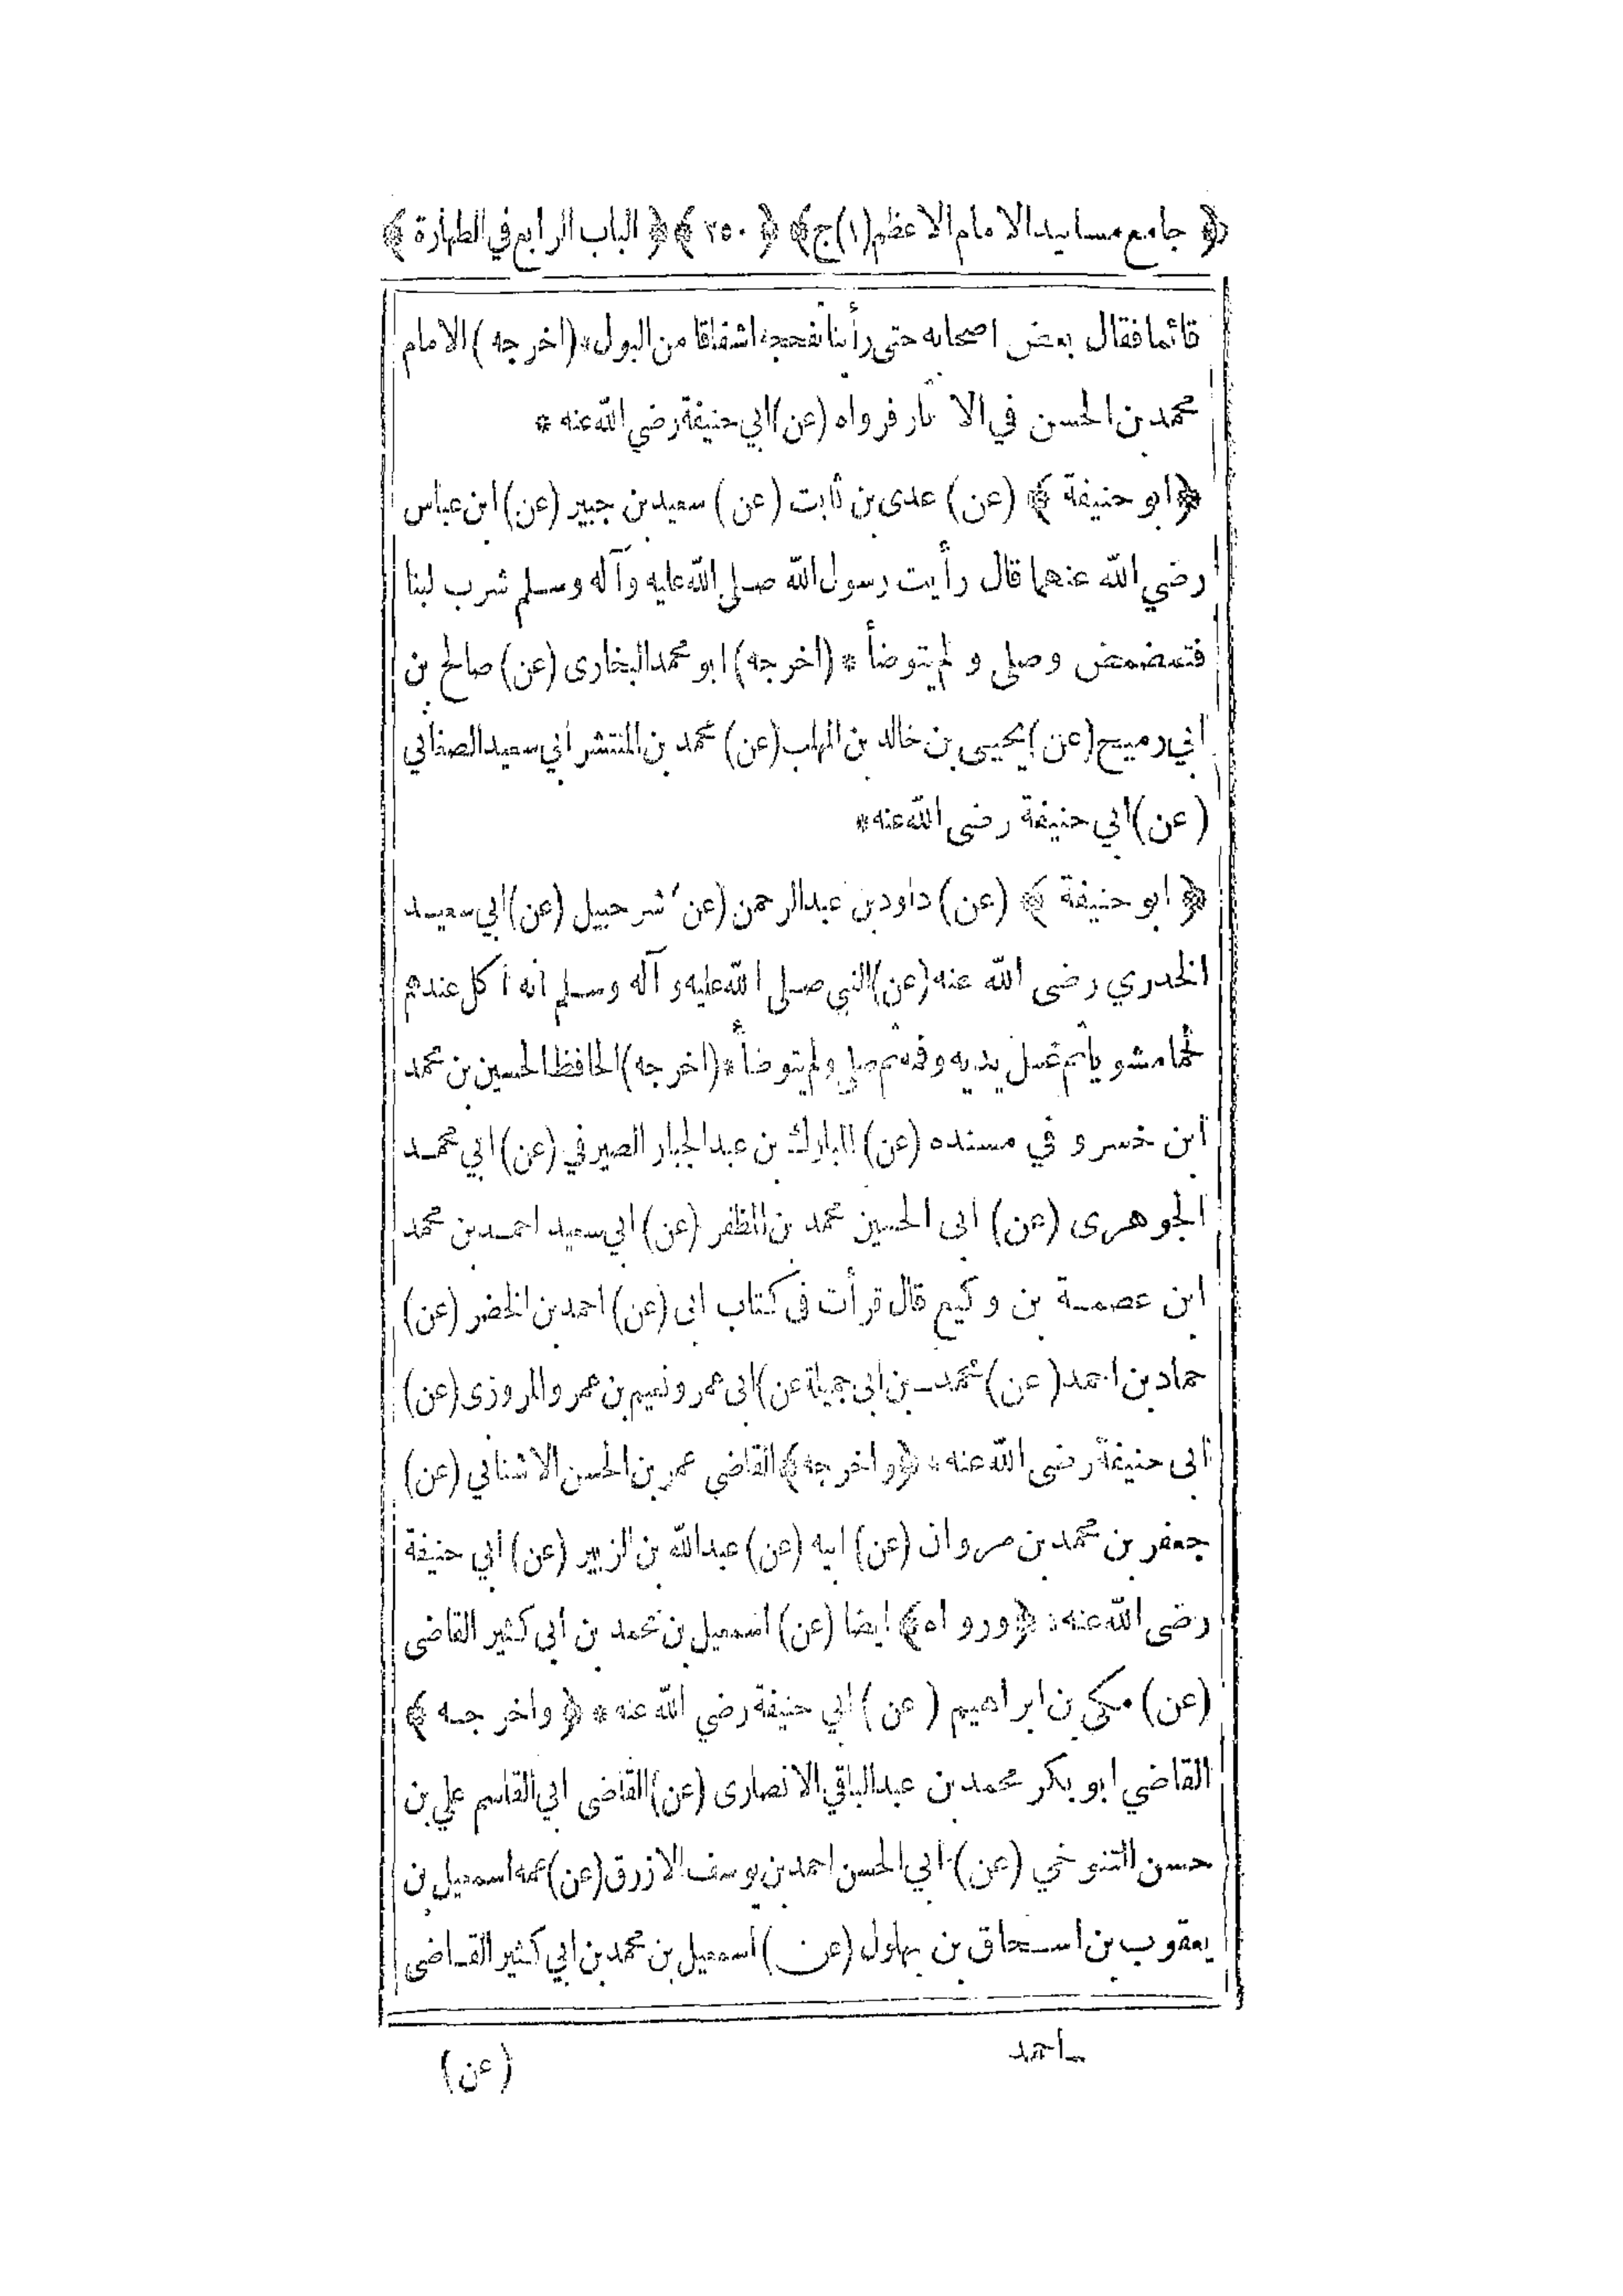 ﴿ جامع مسانيد الامام الاعظم (١) ج ﴾ ﴿ ٢٥٠ ﴾ ﴿ الباب الرابع في الطهارة ﴾
قائما فقال بعض اصحابه حتى رأينا تفحجه اشفاقا من البول * (اخرجه) الامام
محمد بن الحسن في الآثار فرواه (عن) ابي حنيفة رضي الله عنه *
﴿ ابو حنيفة ﴾ (عن) عدى بن ثابت (عن) سعيد بن جبير (عن) ابن عباس
رضي الله عنهما قال رأيت رسول الله صلى الله عليه وآله وسلم شرب لبنا
فتمضمض وصلى ولم يتوضأ * (اخرجه) ابو محمد البخارى (عن) صالح بن
ابي رميح (عن) يحيى بن خالد بن المهلب (عن) محمد بن المنتشر ابي سعيد الصغاني
(عن) ابي حنيفة رضى الله عنه *
﴿ ابو حنيفة ﴾ (عن) داود بن عبد الرحمن (عن) شرحبيل (عن) ابي سعيد
الخدري رضى الله عنه (عن) النبي صلى الله عليه وآله وسلم انه اكل عندهم
لحما مشويا ثم غسل يديه وفمه ثم صلى ولم يتوضأ * (اخرجه) الحافظ الحسين بن محمد
ابن خسرو في مسنده (عن) المبارك بن عبد الجبار الصيرفي (عن) ابي محمد
الجوهرى (عن) ابى الحسين محمد بن المظفر (عن) ابي سعيد احمد بن محمد
ابن عصمة بن وكيع قال قرأت فى كتاب ابى (عن) احمد بن الخضر (عن)
حماد بن احمد (عن) محمد بن ابى جميلة (عن) ابى عمرو نعيم بن عمرو المروزى (عن)
ابى حنيفة رضى الله عنه * ﴿واخرجه﴾ القاضي عمر بن الحسن الاشناني (عن)
جعفر بن محمد بن مروان (عن) ابيه (عن) عبد الله بن الزبير (عن) ابي حنيفة
رضى الله عنه * ﴿ورواه﴾ ايضا (عن) اسمعيل بن محمد بن ابى كثير القاضى
(عن) مكي بن ابراهيم (عن) ابي حنيفة رضي الله عنه * ﴿ واخرجه ﴾
القاضي ابو بكر محمد بن عبد الباقي الانصارى (عن) القاضى ابي القاسم علي بن
حسن التنوخي (عن) ابي الحسن احمد بن يوسف الازرق (عن) عمه اسمعيل بن
يعقوب بن اسحاق بن بهلول (عن) اسمعيل بن محمد بن ابي كثير القاضى
احمد
(عن)